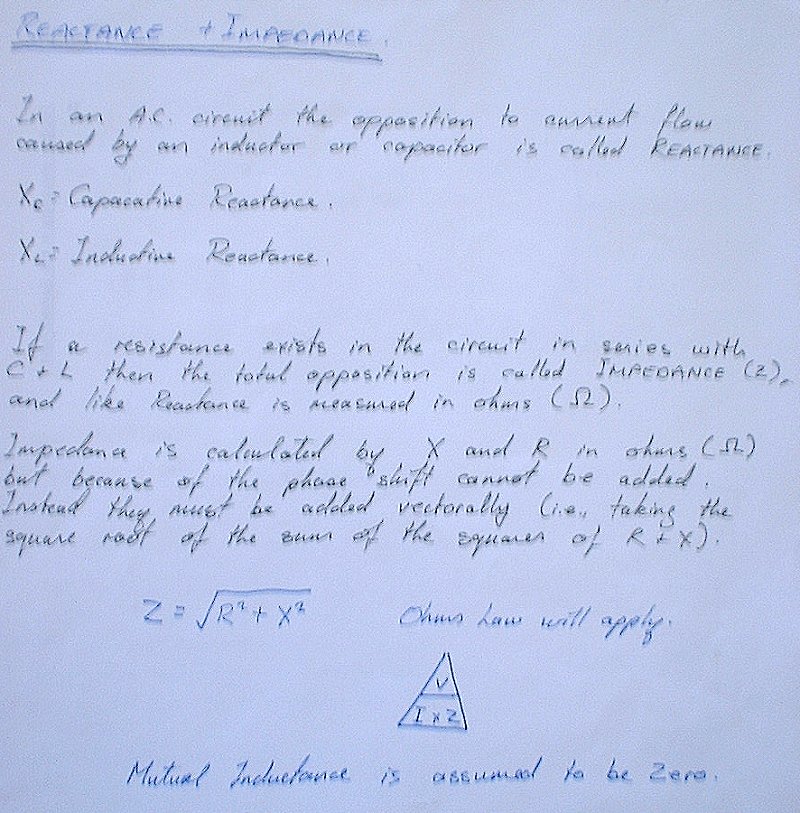 REACTANCE + IMPEDANCE.
In an A.C. circuit the opposition to current flow
caused by an inductor or capacitor is called REACTANCE.
Xc = Capacative Reactance.
XL = Inductive Reactance.
If a resistance exists in the circuit in series with
C + L then the total opposition is called IMPEDANCE (Z),
and like Reactance is measured in ohms (Ω).
Impedance is calculated by X and R in ohms (Ω)
but because of the phase shift cannot be added.
Instead they must be added vectorally (i.e., taking the
square root of the sum of the squares of R + X).
Z = √R² + X² Ohms Law will apply.
V
I x Z
Mutual Inductance is assumed to be Zero.